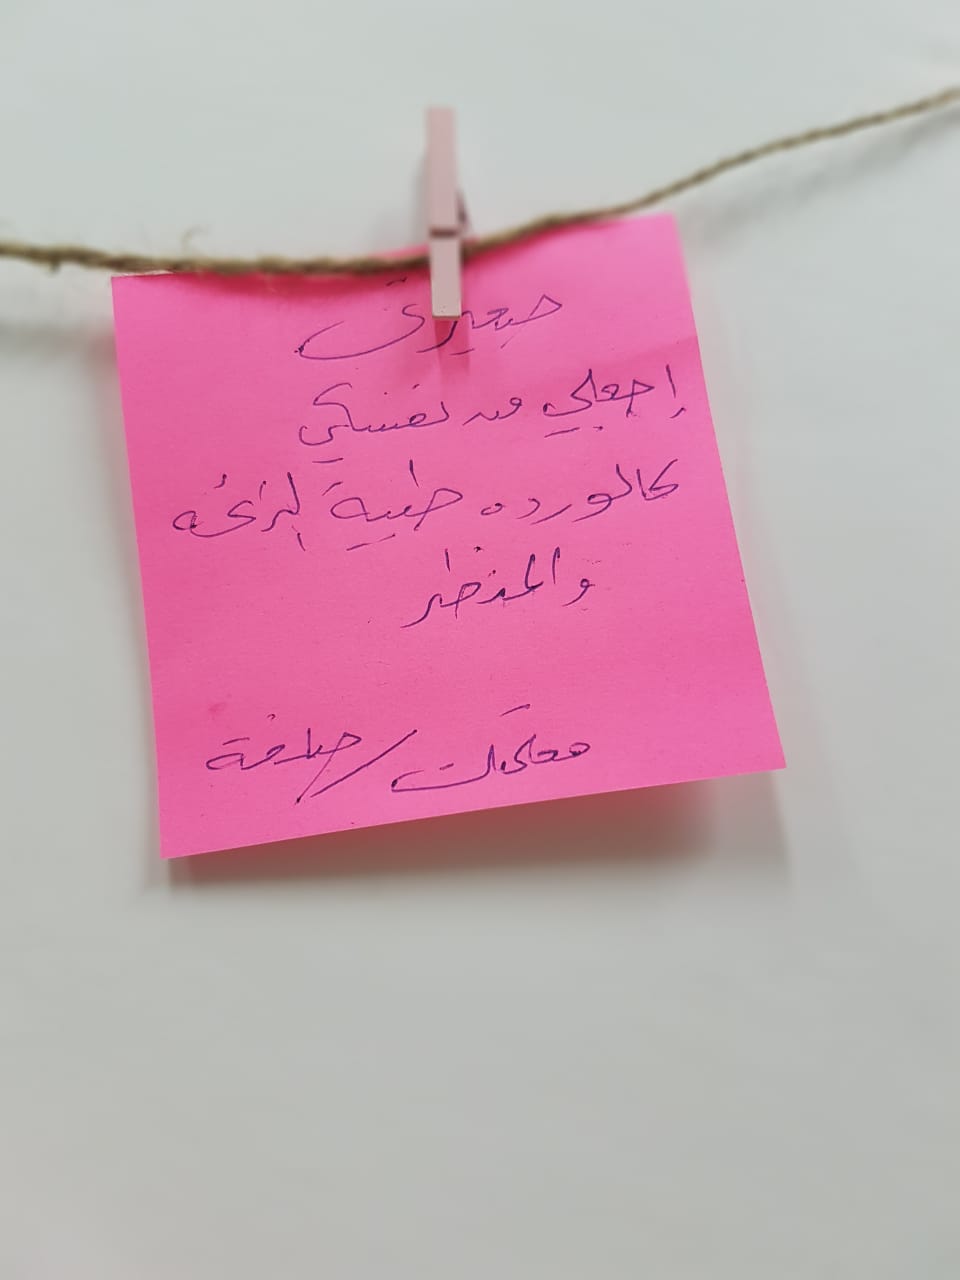 صغيرتي
إجعلي من نفسكي
كالورده طيبة الرائحه
والمنظر
معلمتك /